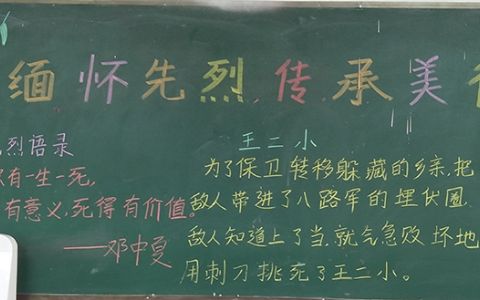 缅怀先烈,传承美
烈语录
有一生一死,
有意义,死得有价值。
——邓中夏
王二小
为了保卫转移躲藏的乡亲,把
敌人带进了八路军的埋伏圈
敌人知道上了当,就气急败坏地
用刺刀挑死了王二小。